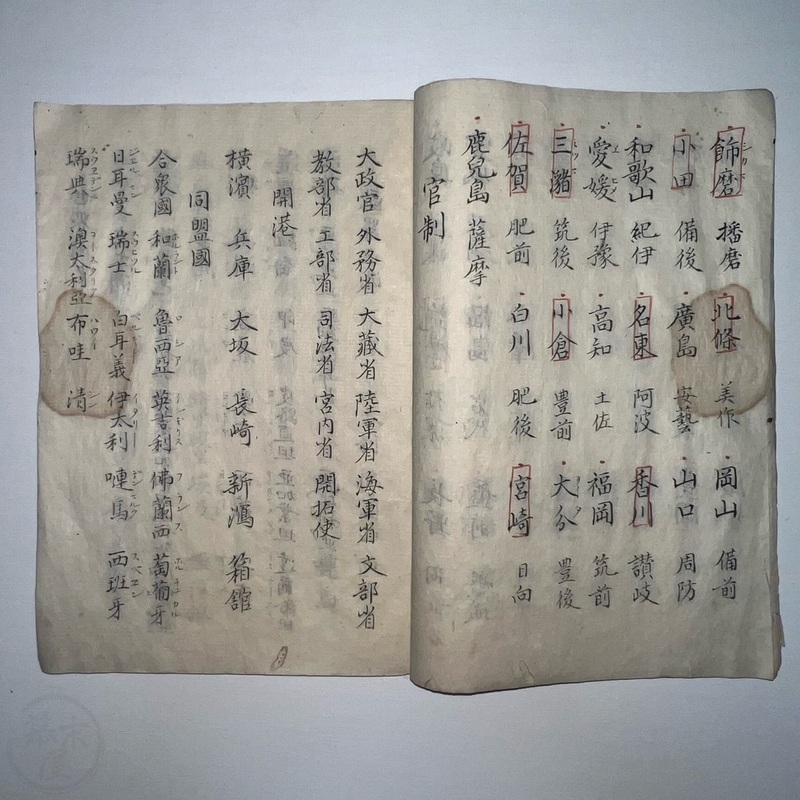 飾磨 播磨 北條 美作 岡山 備前
小田 備後 廣島 安藝 山口 周防
和歌山 紀伊 名東 阿波 香川 讃岐
愛媛 伊豫 高知 土佐 福岡 筑前
三潴 筑後 小倉 豊前 大分 豊後
佐賀 肥前 白川 肥後 宮崎 日向
鹿兒島 薩摩
官制
大政官 外務省 大藏省 陸軍省 海軍省 文部省
教部省 工部省 司法省 宮内省 開拓使
開港
横濱 兵庫 大坂 長崎 新潟 箱舘
同盟國
合衆國 和蘭 魯西亞 英吉利 佛蘭西 葡萄牙
日耳曼 瑞士 白耳義 伊太利 嗹馬 西班牙
瑞典 澳太利亞 布哇 清